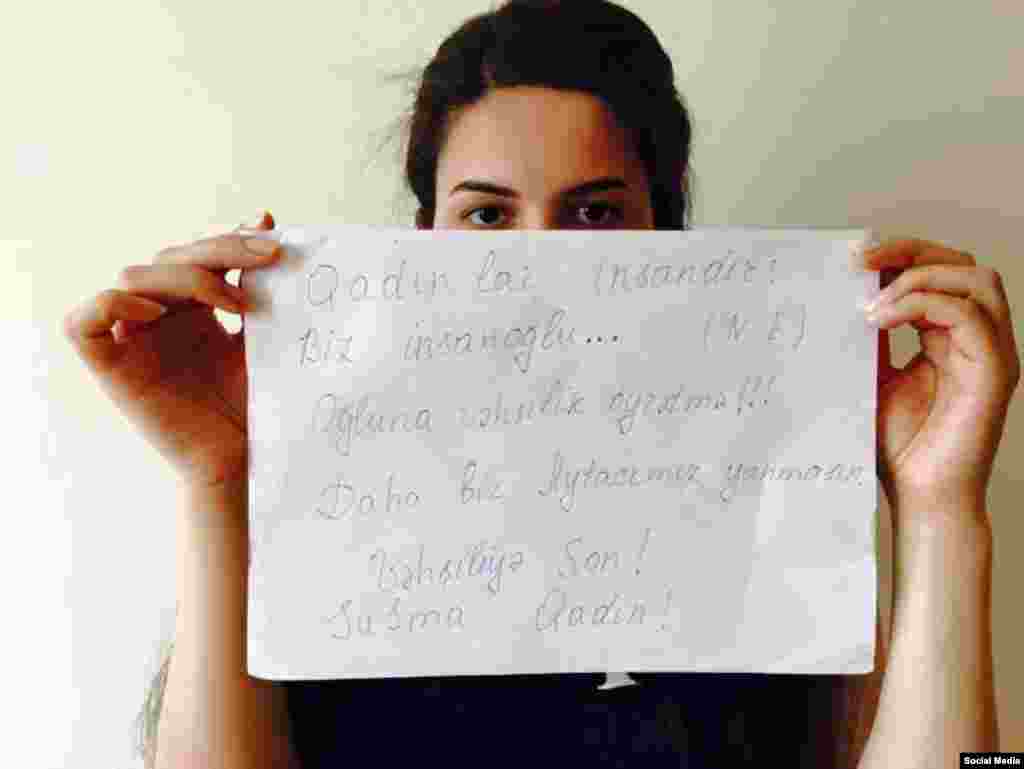 Qadınlar insandır!
Biz insanoğlu... (N E)
Oğluna vəhşilik öyrətmə!!!
Daha biz Aytacımız yanmasın
Vəhşiliyə Son!
Susma Qadın!
Social Media